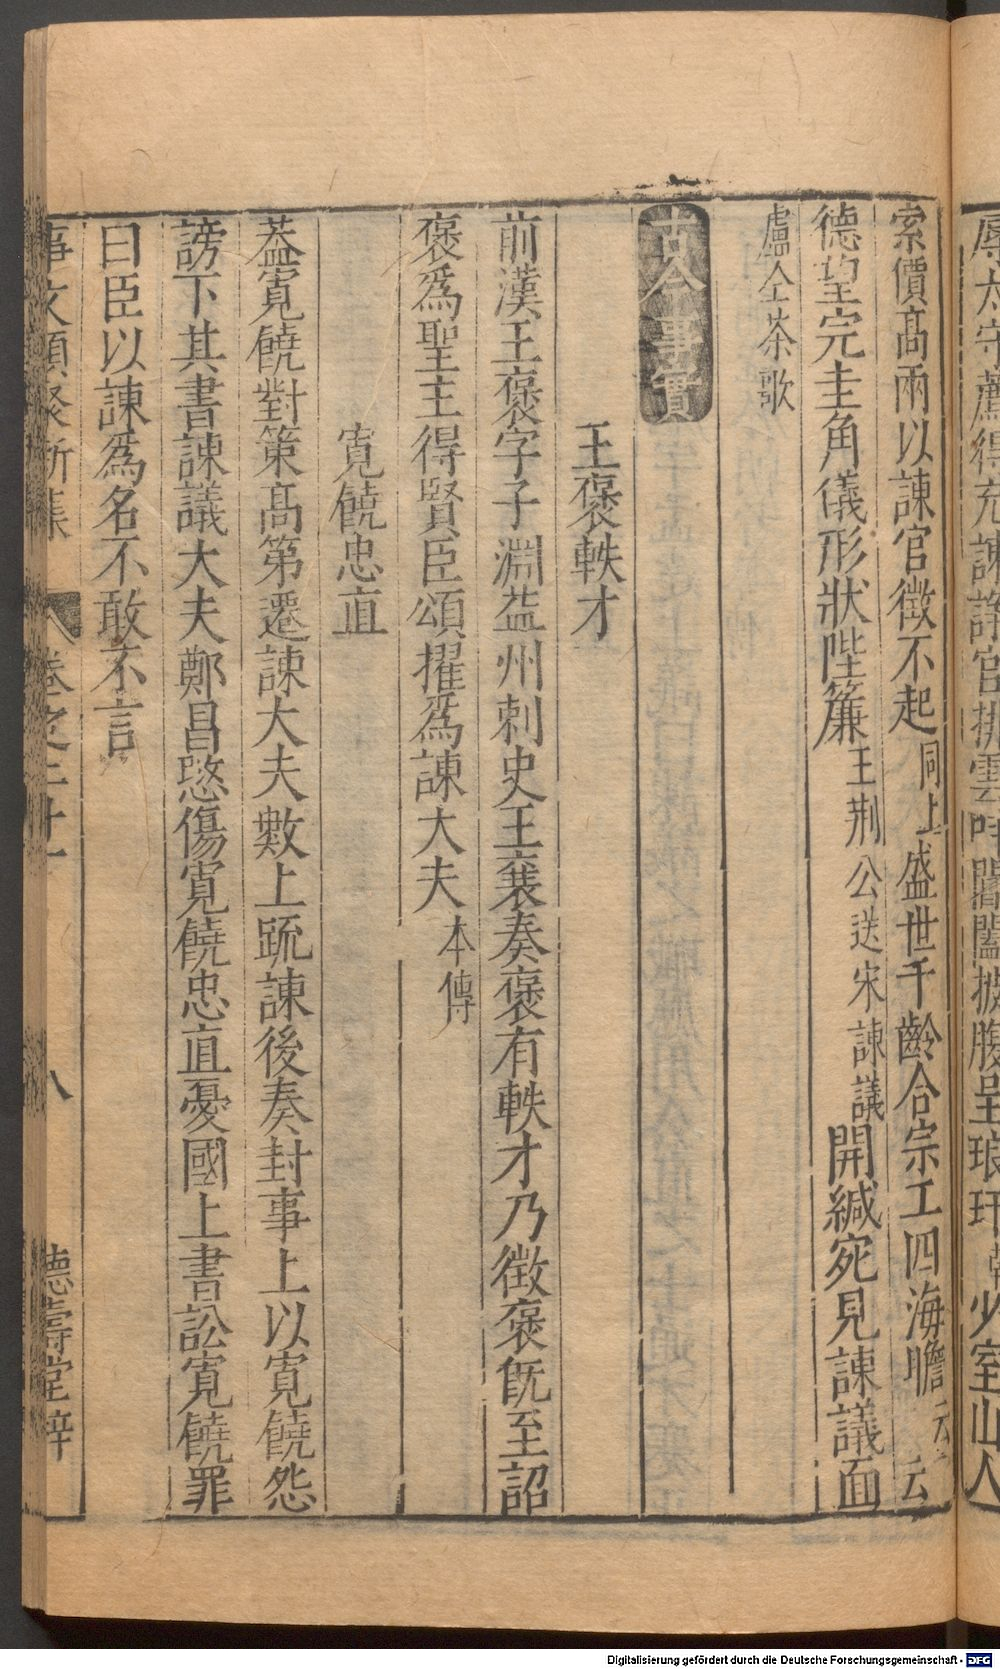 辱太守薦得充諫諍官排雲叫閶闔披腹呈琅玕韓少室山人
索價高兩以諫官徴不起同上盛世千齡合宗工四海瞻云云
德望完圭角儀形狀陛簾王荆公送宋諫議開緘宛見諫議面
盧仝茶歌
古今事實
王褒軼才
前漢王褒字子淵益州刺史王襄奏褒有軼才乃徴褒旣至詔
褒爲聖主得賢臣頌擢爲諫大夫本傳
寛饒忠直
蓋寛饒對策高第遷諫大夫數上疏諫後奏封事上以寛饒怨
謗下其書諫議大夫鄭昌愍傷寛饒忠直憂國上書訟寛饒罪
曰臣以諫爲名不敢不言
事文類聚新集 卷之二十一 八 德壽堂梓
Digitalisierung gefördert durch die Deutsche Forschungsgemeinschaft - DFG